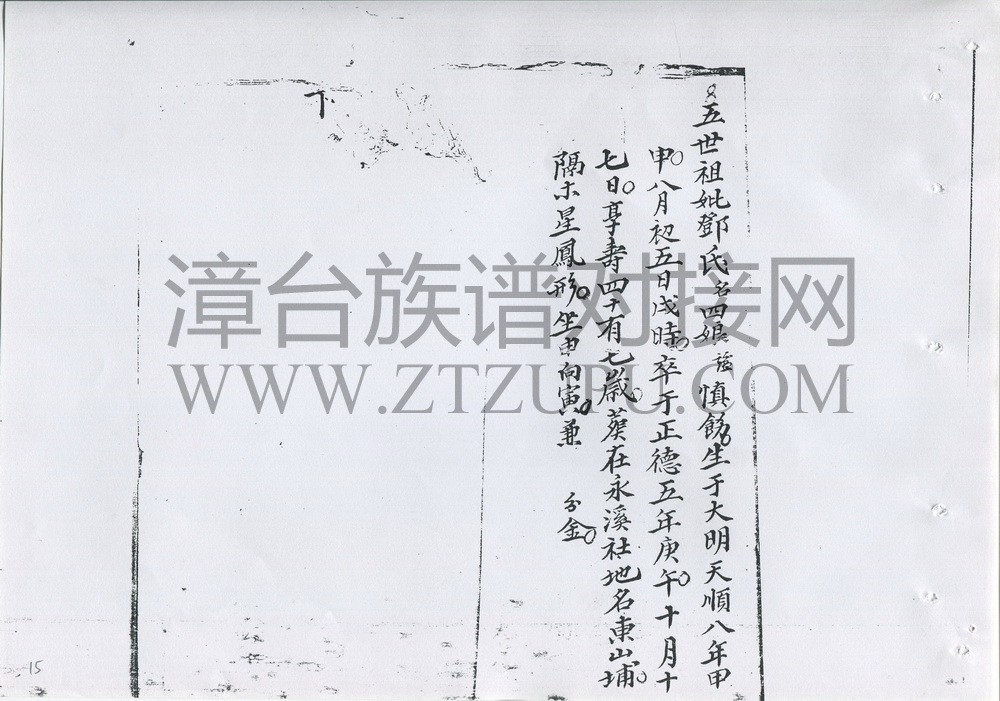 五世祖妣鄧氏名四娘諡慎飭生于大明天順八年甲
申八月初五日戌時卒于正德五年庚午十月十
七日享壽四十有七歲葬在永溪社地名東山埔
隔木星鳳形坐申向寅兼 分金
下
漳台族谱对接网
WWW.ZTZUPU.COM
15